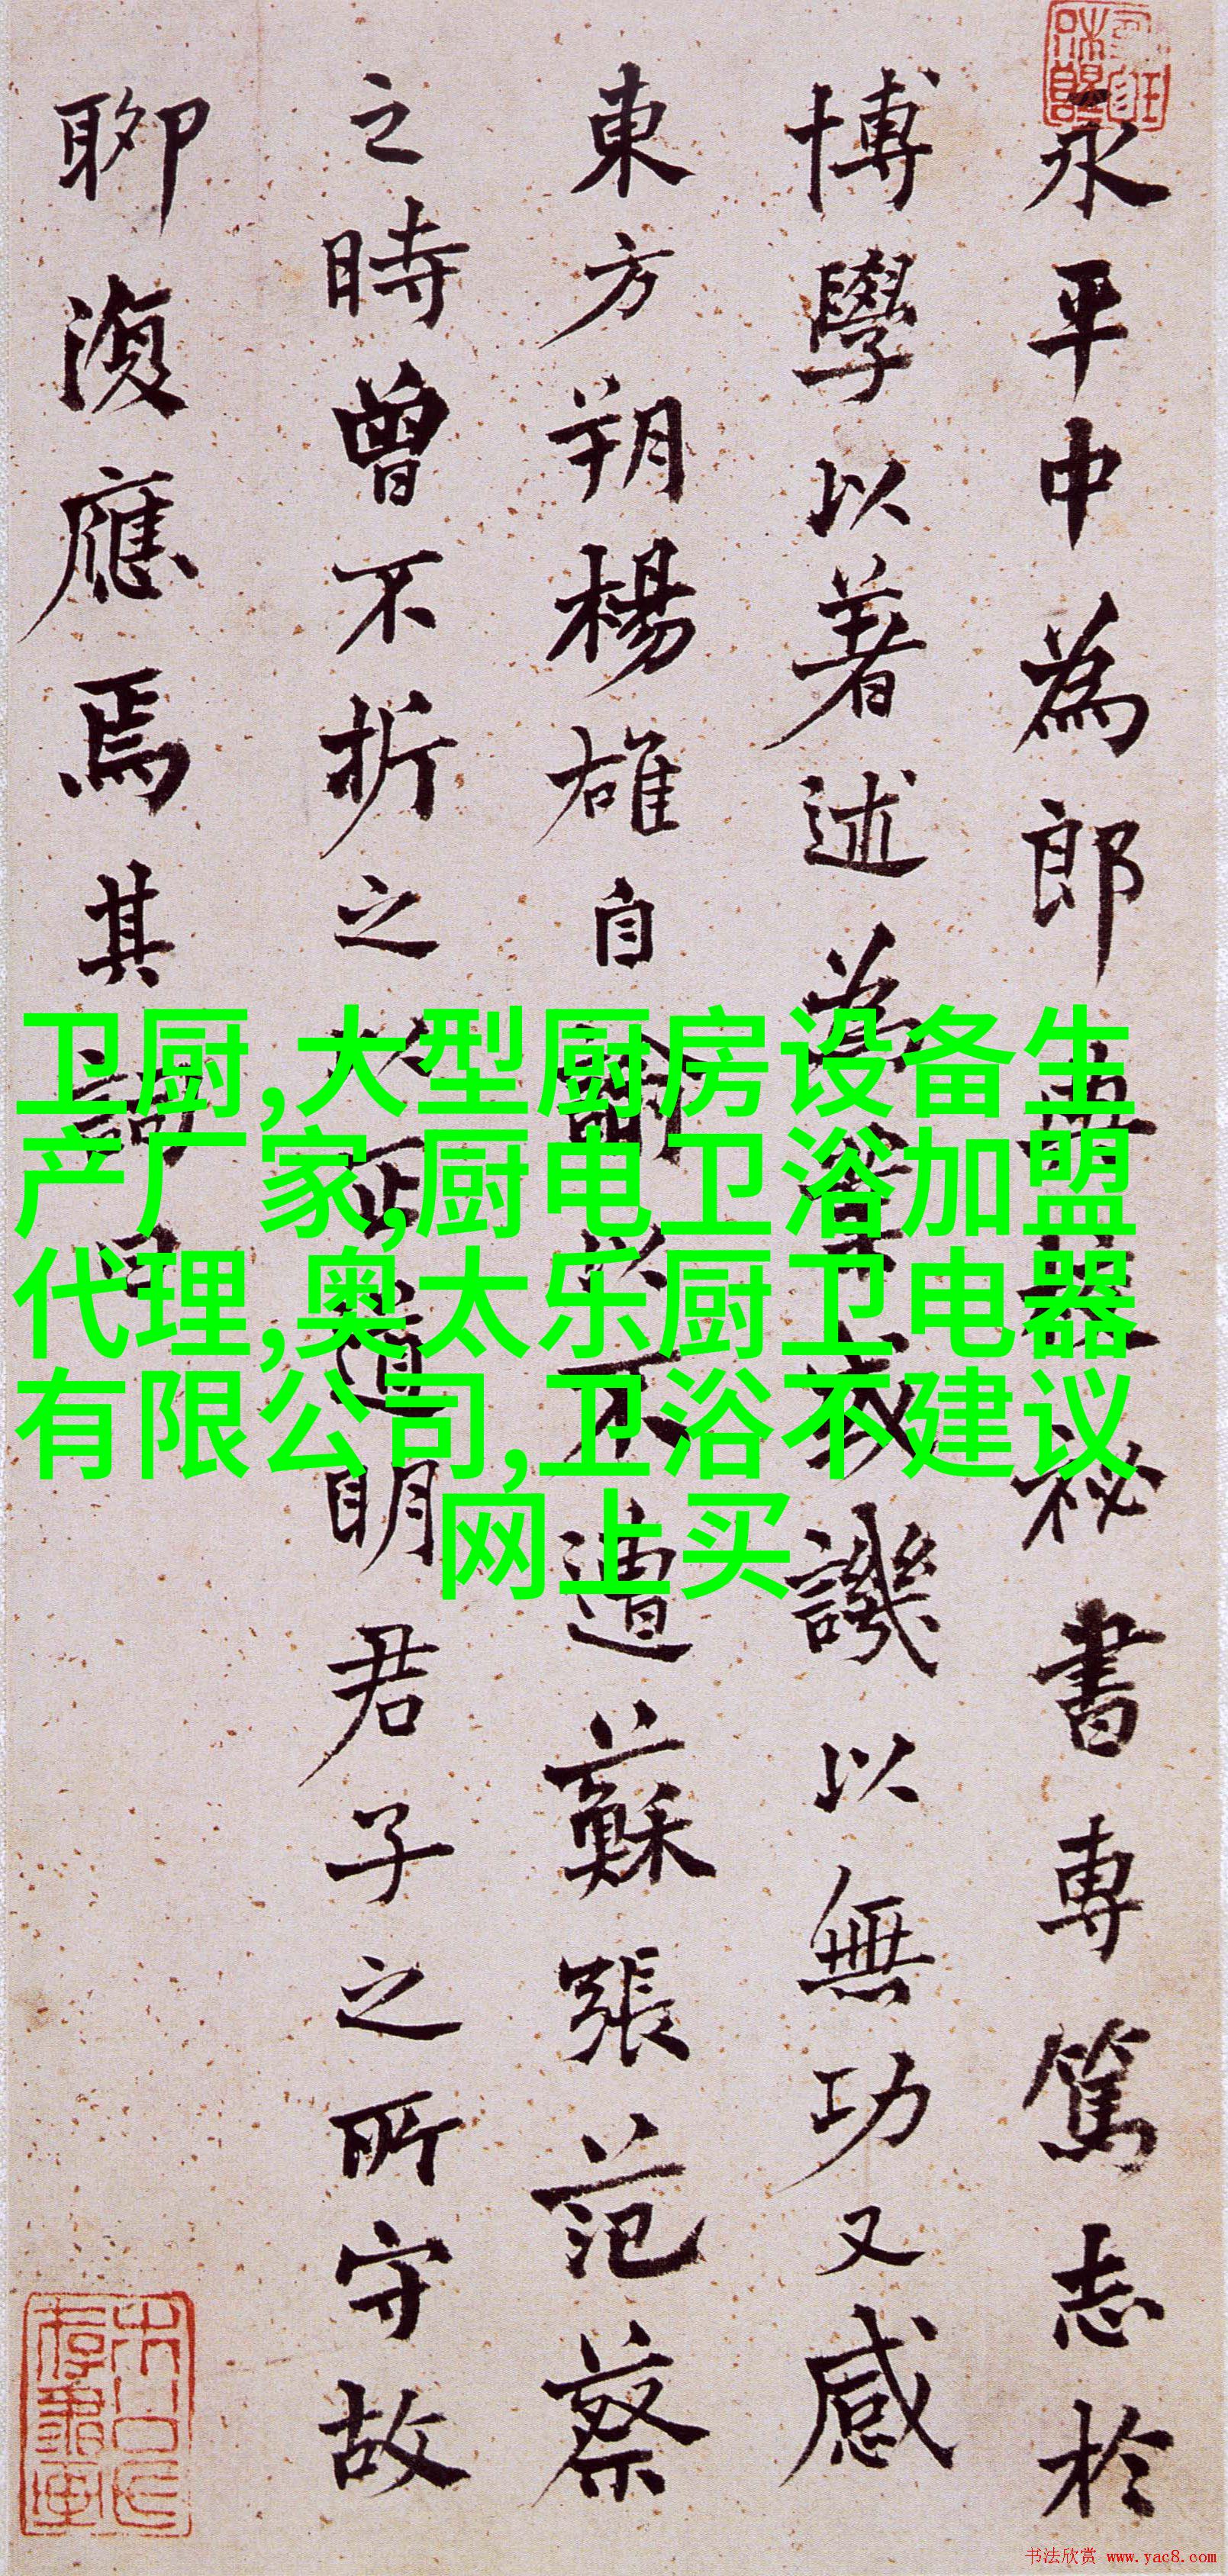 永平中為郎校秘書專篤志於
博學以著述為業或譏以無功又感
東方朔楊雄自諭以不遭蘇張范蔡
之時曾不折之以正道明君子之所守故
聊復應焉其詞曰
卫厨,大型厨房设备生
产厂家,厨电卫浴加盟
代理,奥太乐厨卫电器
有限公司,卫浴不建议
网上买
书法欣赏 www.yac8.com